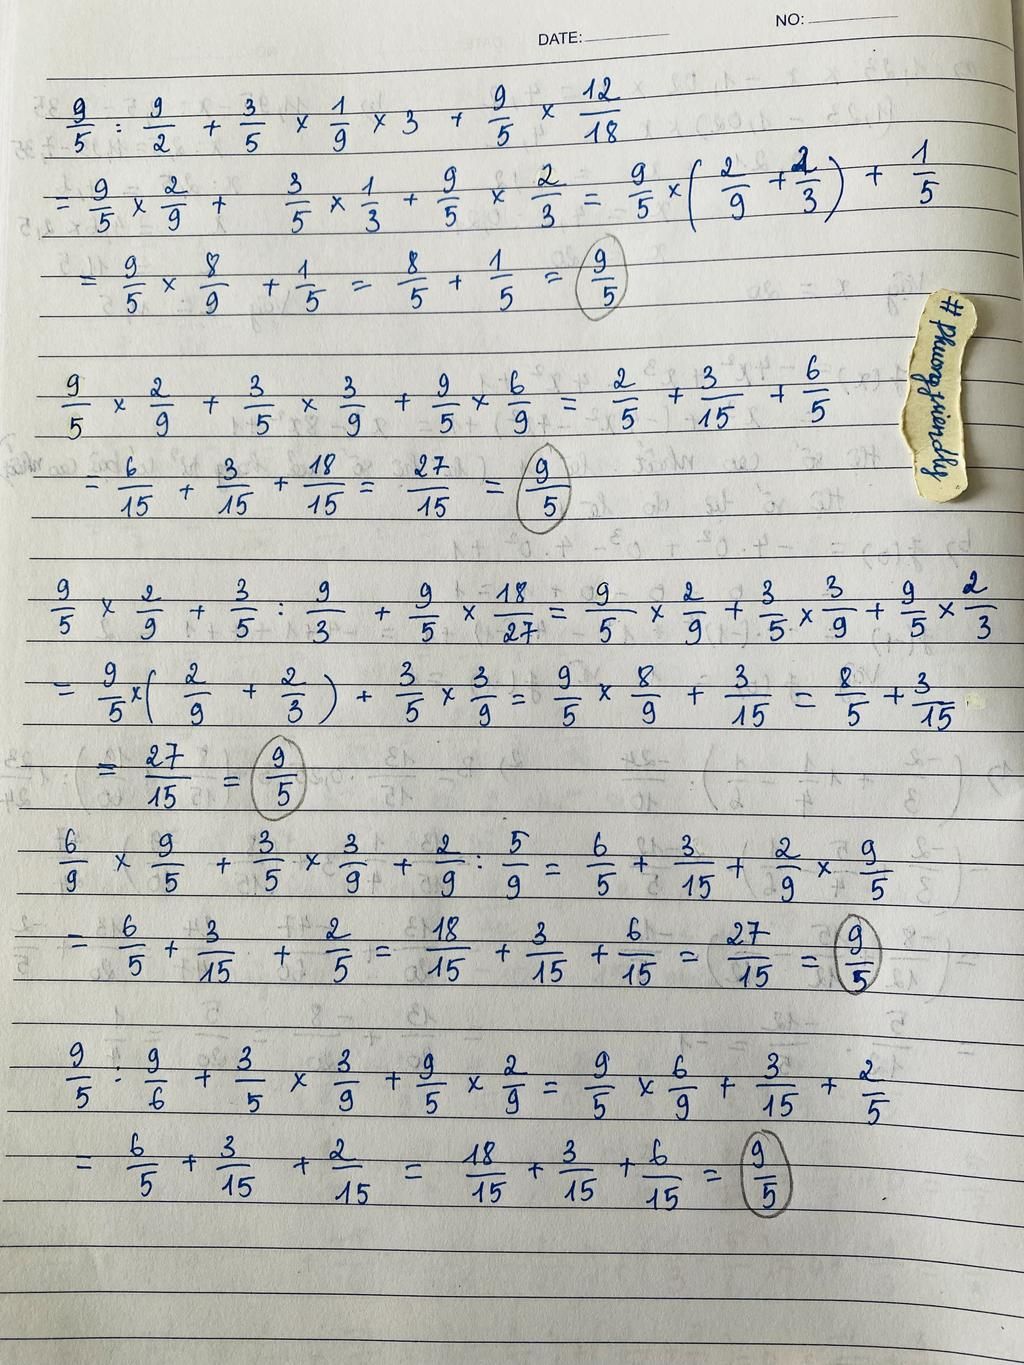 NO:
DATE:
9/5 : 9/2 + 3/5 × 1/9 × 3 + 9/5 × 12/18
= 9/5 × 2/9 + 3/5 × 1/3 + 9/5 × 2/3 = 9/5 × (2/9 + 2/3) + 1/5
= 9/5 × 8/9 + 1/5 = 8/5 + 1/5 = 9/5
#Phuongfriendly
9/5 × 2/9 + 3/5 × 3/9 + 9/5 × 6/9 = 2/5 + 3/15 + 6/5
= 6/15 + 3/15 + 18/15 = 27/15 = 9/5
9/5 × 2/9 + 3/5 : 9/3 + 9/5 × 18/27 = 9/5 × 2/9 + 3/5 × 3/9 + 9/5 × 2/3
= 9/5 × (2/9 + 2/3) + 3/5 × 3/9 = 9/5 × 8/9 + 3/15 = 8/5 + 3/15
= 27/15 = 9/5
6/9 × 9/5 + 3/5 × 3/9 + 2/9 : 5/9 = 6/5 + 3/15 + 2/9 × 9/5
= 6/5 + 3/15 + 2/5 = 18/15 + 3/15 + 6/15 = 27/15 = 9/5
9/5 : 9/6 + 3/5 × 3/9 + 9/5 × 2/9 = 9/5 × 6/9 + 3/15 + 2/5
= 6/5 + 3/15 + 2/15 = 18/15 + 3/15 + 6/15 = 9/5